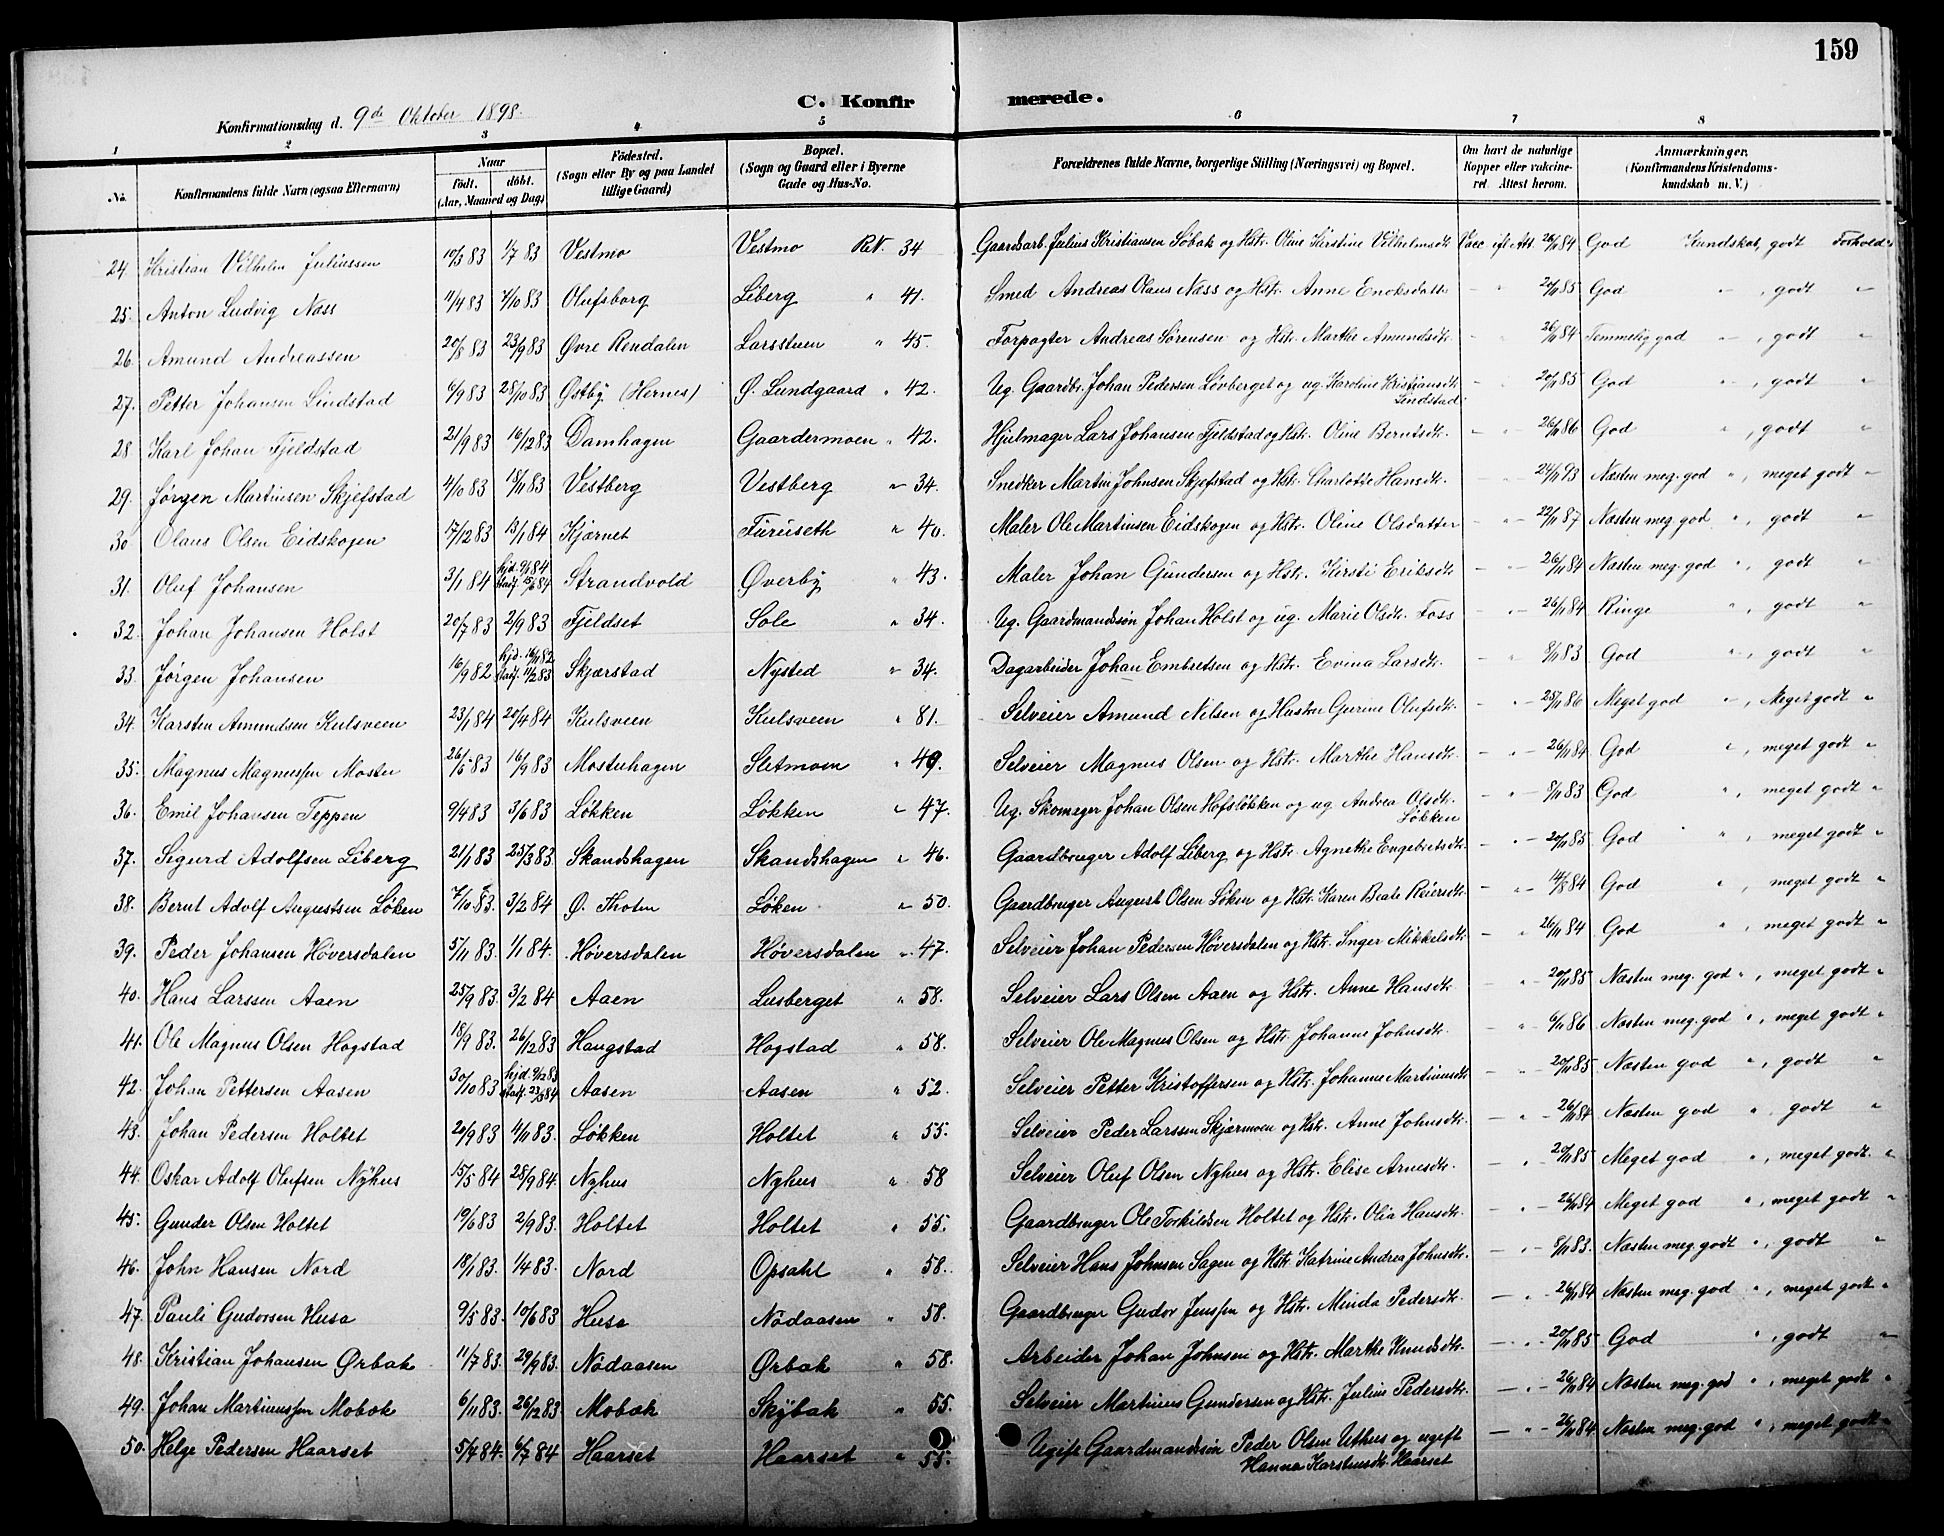 159
C. Konfirmerede.
Konfirmationsdag d. 9de Oktober 1898.
1 2 3 4 5 6 7 8
No. Konfirmandens fulde Navn (ogsaa Efternavn) Naar födt. döbt. (Aar, Maaned og Dag) Födested. (Sogn eller By og paa Landet tillige Gaard) Bopæl. (Sogn og Gaard eller i Byerne Gade og Hus-No. Forældrenes fulde Navne, borgerlige Stilling (Næringsvei) og Bopæl. Om havt de naturlige Kopper eller vakcineret. Attest herom. Anmærkninger. (Konfirmandens Kristendomskundskab m. V.)
24. Kristian Vilhelm Juliussen 10/3 83 1/7 83 Vestmo Vestmo Rt. 34 Gaardsarb. Julius Kristiansen Søbak og Hstr. Oline Kirstine Vilhelmsdt. Vacc ifl. Att. 26/11 84 God Kundskab, godt Forhold
25. Anton Ludvig Næss 11/4 83 7/10 83 Olufsborg Liberg " 41. Smed Andreas Olaus Næss og Hstr. Anne Enoksdatter - " 20/11 85 God " , godt "
26. Amund Andreassen 20/8 83 23/9 83 Øvre Rendalen Larsstuen " 45. Forpagter Andreas Sørensen og Hstr. Marthe Amundsdt. - " 26/11 84 Temmelig god " , godt "
27. Petter Johansen Lindstad 6/9 83 28/10 83 Østby (Hernes) Ø. Lundgaard " 42. Ug. Gaardbr. Johan Pedersen Løvberget og ug. Karoline Kristiansdt. Lindstad - " 20/11 85 God " , godt "
28 Karl Johan Fjeldstad 21/9 83 16/12 83 Damhagen Gaardermoen " 42. Hjulmager Lars Johansen Fjeldstad og Hstr. Oline Berntsdt. - " 26/11 86 God " , godt "
29. Jørgen Martinsen Skjefstad 4/10 83 18/11 83 Vestberg Vestberg " 34. Snedker Martin Johnsen Skjefstad og Hstr. Charlotte Hansdt. - " 24/11 93 Næsten meg. god " , meget godt "
30. Olaus Olsen Eidskogen 17/12 83 13/1 84 Kjærnet Furuseth " 40. Maler Ole Martinsen Eidskogen og Hstr. Oline Olsdatter - " 22/11 87 Næsten meg god " , godt "
31. Oluf Johansen 3/1 84 hjd. 9/1 84 stadf. 15/6 84 Strandvold Øverby " 43. Maler Johan Gundersen og Hstr. Kirsti Eriksdt. - " 26/11 84 Næsten meg. god " , godt "
32. Johan Johansen Holst 20/7 83 2/9 83 Fjeldset Sole " 34. Ug. Gaardmandssøn Johan Holst og ug. Marie Olsdt. Foss - " 26/11 84 Ringe " , godt "
33. Jørgen Johansen 16/9 82 hjd. 16/11 82 stadf. 11/2 83 Skjærstad Nysted " 34. Dagarbeider Johan Embretsen og Hstr. Evina Larsdt. - " 8/11 83 God " , godt "
34. Karsten Amundsen Kulsveen 23/1 84 20/4 84 Kulsveen Kulsveen " 81. Selveier Amund Nilsen og Hustru Gurine Olufsdt. - " 25/11 86 Meget god " , Meget godt "
35. Magnus Magnussen Moster 26/5 83 16/9 83 Mosterhagen Sletmoen " 49. Selveier Magnus Olsen og Hstr. Marthe Hansdt. - " 26/11 84 God " , meget godt "
36. Emil Johansen Teppen 9/4 83 3/6 83 Løkken Løkken " 47. Ug. Skomager Johan Olsen Hofsløkken og ug. Andrea Olsdt. Løkken - " 8/11 83 God " , meget godt "
37. Sigurd Adolfsen Liberg 21/1 83 25/3 83. Skandshagen Skandshagen " 46. Gaardbruger Adolf Liberg og Hstr. Agnethe Engebretsdt. - " 20/11 85 God " , meget godt "
38. Bernt Adolf Augustsen Løken 7/10 83. 3/2 84 Ø. Thoten Løken " 50. Gaardbruger August Olsen Løken og Hstr. Karen Beate Reiersdt. - " 14/8 84 God " , meget godt "
39. Peder Johansen Höversdalen 5/11 83. 1/1 84. Höversdalen Höversdalen " 47. Selveier Johan Pedersen Höversdalen og Hstr. Inger Mikkelsdt. - " 26/11 84 God " , meget godt "
40. Hans Larssen Aaen 25/9 83. 3/2 84 Aaen Lusberget " 58. Selveier Lars Olsen Aaen og Hstr. Anne Hansdt. - " 20/11 85 Næsten meg. god " , meget godt "
41. Ole Magnus Olsen Hogstad 18/9 83. 26/12 83 Haugstad Hogstad " 58. Selveier Ole Magnus Olsen og Hstr. Johanne Johnsdt. - " 6/11 86 Næsten meg. god " , meget godt "
42. Johan Pettersen Aasen 30/10 83 hjd. 9/12 83 stadf. 23/3 84 Aasen Aasen " 52. Selveier Petter Kristoffersen og Hstr. Johanne Martinusdt. - " 20/11 85 Næsten god " , godt "
43. Johan Pedersen Holtet 20/9 83 4/11 83. Løkken Holtet " 55. Selveier Peder Larssen Skjærmoen og Hstr. Anne Johnsdt. - " 26/11 84 Næsten god " , godt "
44. Oskar Adolf Olufsen Nyhus 15/5 84 28/9 84. Nyhus Nyhus " 58 Selveier Oluf Olsen Nyhus og Hstr. Elise Arnesdt. - " 20/11 85 Meget god " , meget godt. "
45. Gunder Olsen Holtet 19/6 83 2/9 83. Holtet Holtet " 55. Gaardbruger Ole Torkildsen Holtet og Hstr. Olia Hansdt. - " 26/11 84 Meget god " , meget godt "
46. John Hansen Nord 18/1 83. 1/4 83. Nord Opsahl " 58. Selveier Hans Johnsen Sagen og Hstr. Katrine Andrea Johnsdt. - " 8/11 83. Næsten meg. godt " , godt "
47. Pauli Gudorsen Husa 9/5 83. 10/6 83 Husa Nödaasen " 58. Gaardbruger Gudor Jenssen og Hstr. Minda Pedersdt. - " 26/11 84 Næsten meg. god " , meget godt "
48. Kristian Johansen Ørbak 11/7 83. 29/9 83. Nödaasen Ørbak " 58. Arbeider Johan Johnsen og Hstr. Marthe Knudsdt. - " 20/11 85 God " , godt "
49. Johan Martinussen Mobak 6/11 83. 26/12 83. Mobak Skybak " 55. Selveier Martinus Gundersen og Hstr. Julius Pedersdt. - " 26/11 84 Næsten meg. god " , meget godt "
50. Helge Pedersen Haarset 5/4 84. 6/7 84 Haarset Haarset " 55. Ugift Gaardmandssøn Peder Olsen Uthus og ugift Hanna Karstensdt. Haarset - " 26/11 84 Næsten meg. god " , meget godt "